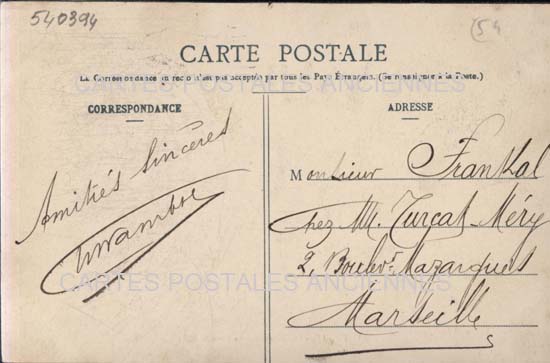 540394
54
CARTE POSTALE
La Correspondance au recto n'est pas acceptée par tous les Pays Étrangers. (Se renseigner à la Poste.)
CARTES POSTALES ANCIENNES
CORRESPONDANCE
Amitiés Sincères
ADRESSE
Monsieur Frankal
Chez MM. Turcat-Méry
2, Boulevt Mazargues
Marseille
CARTES POSTALES ANCIENNES